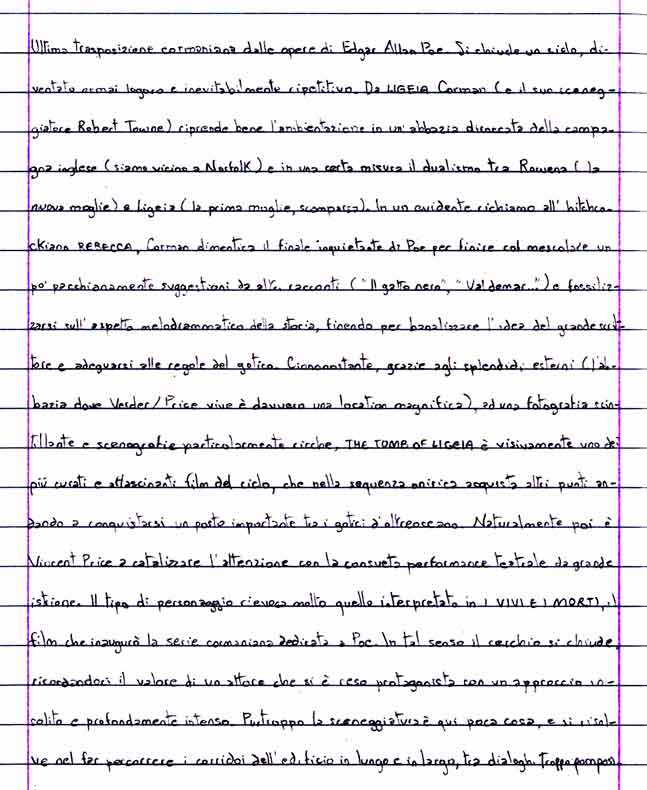 Ultima trasposizione cormaniana dalle opere di Edgar Allan Poe. Si chiude un ciclo, di-
ventato ormai logoro e inevitabilmente ripetitivo. Da LIGEIA Corman (e il suo sceneg-
giatore Robert Towne) riprende bene l'ambientazione in un'abbazia diroccata della campa-
gna inglese (siamo vicino a Norfolk) e in una certa misura il dualismo tra Rowena (la
nuova moglie) e Ligeia (la prima moglie, scomparsa). In un evidente richiamo all'hitchco-
ckiano REBECCA, Corman dimentica il finale inquietante di Poe per finire col mescolare un
po' pacchianamente suggestioni da altri racconti ("Il gatto nero", "Valdemar...") e fossiliz-
zarsi sull'aspetto melodrammatico della storia, finendo per banalizzare l'idea del grande scrit-
tore e adeguarsi alle regole del gotico. Ciononostante, grazie agli splendidi esterni (l'ab-
bazia dove Verden/Price vive è davvero una location magnifica), ad una fotografia scin-
tillante e scenografie particolarmente ricche, THE TOMB OF LIGEIA è visivamente uno dei
più curati e affascinanti film del ciclo, che nella sequenza onirica acquista altri punti an-
dando a conquistarsi un posto importante tra i gotici d'oltreoceano. Naturalmente poi è
Vincent Price a catalizzare l'attenzione con la consueta performance teatrale da grande
istrione. Il tipo di personaggio rievoca molto quello interpretato in I VIVI E I MORTI, il
film che inaugurò la serie cormaniana dedicata a Poe. In tal senso il cerchio si chiude,
ricordandoci il valore di un attore che si è reso protagonista con un approccio in-
solito e profondamente intenso. Purtroppo la sceneggiatura è qui poca cosa, e si risol-
ve nel far percorrere i corridoi dell'edificio in lungo e in largo, tra dialoghi troppo pomposi